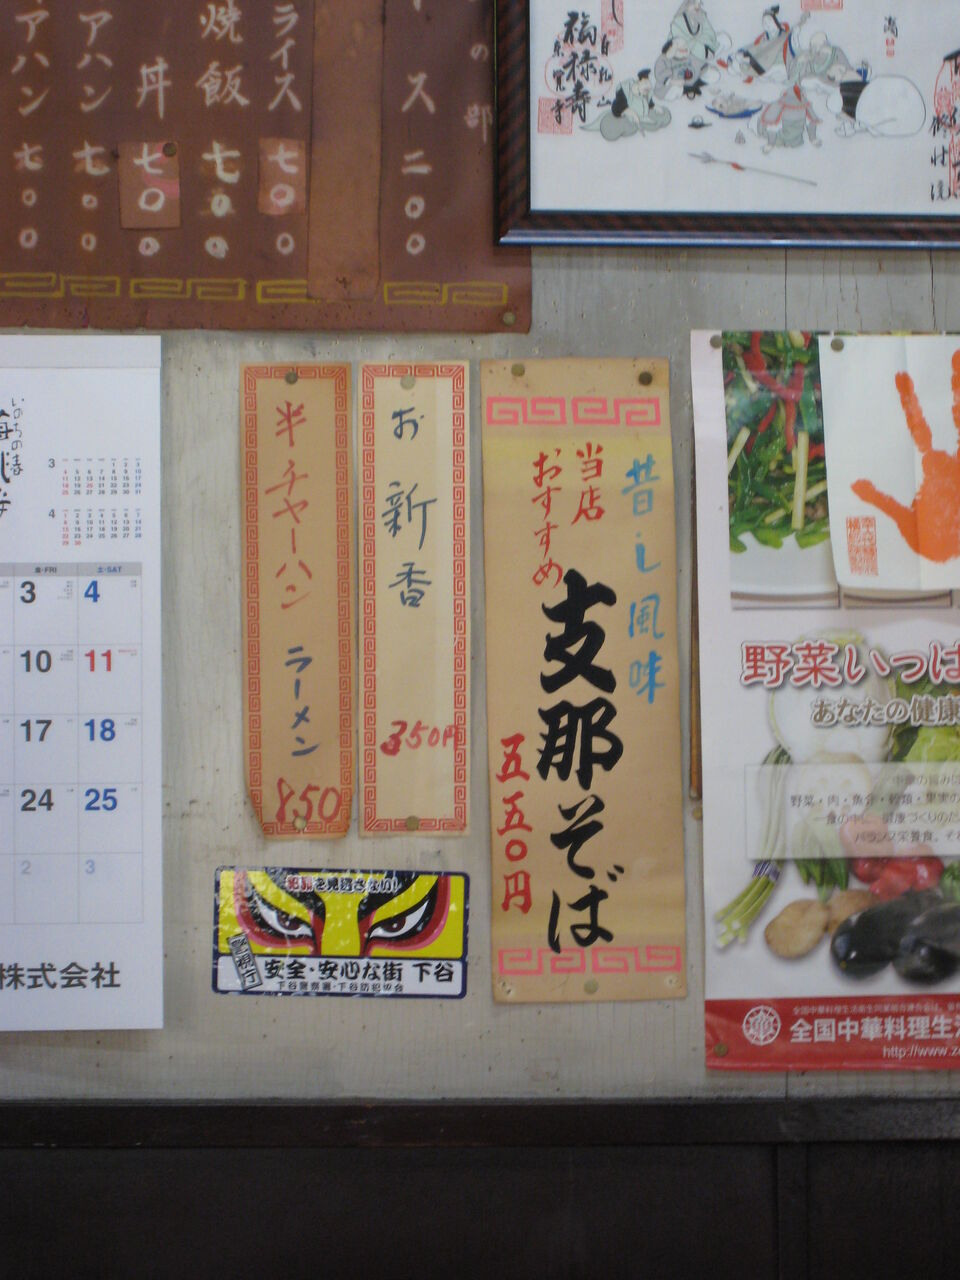 の部
ース 二〇〇
ライス 七〇〇
焼飯 七〇〇
丼 七〇〇
アハン 七〇〇
アハン 七〇〇
福禄寿
半チャーハン ラーメン 850
お新香 350円
昔し風味
当店
おすすめ
支那そば
五五〇円
いのちの春
3
4
金・FRI
土・SAT
3 4
10 11
17 18
24 25
2 3
株式会社
犯罪を見逃さない!
警視庁
安全・安心な街 下谷
下谷警察署・下谷防犯協会
野菜いっぱ
あなたの健康
野菜・肉・魚介・穀類・果実の
バランス栄養食。
全国中華料理生活
http://www.z